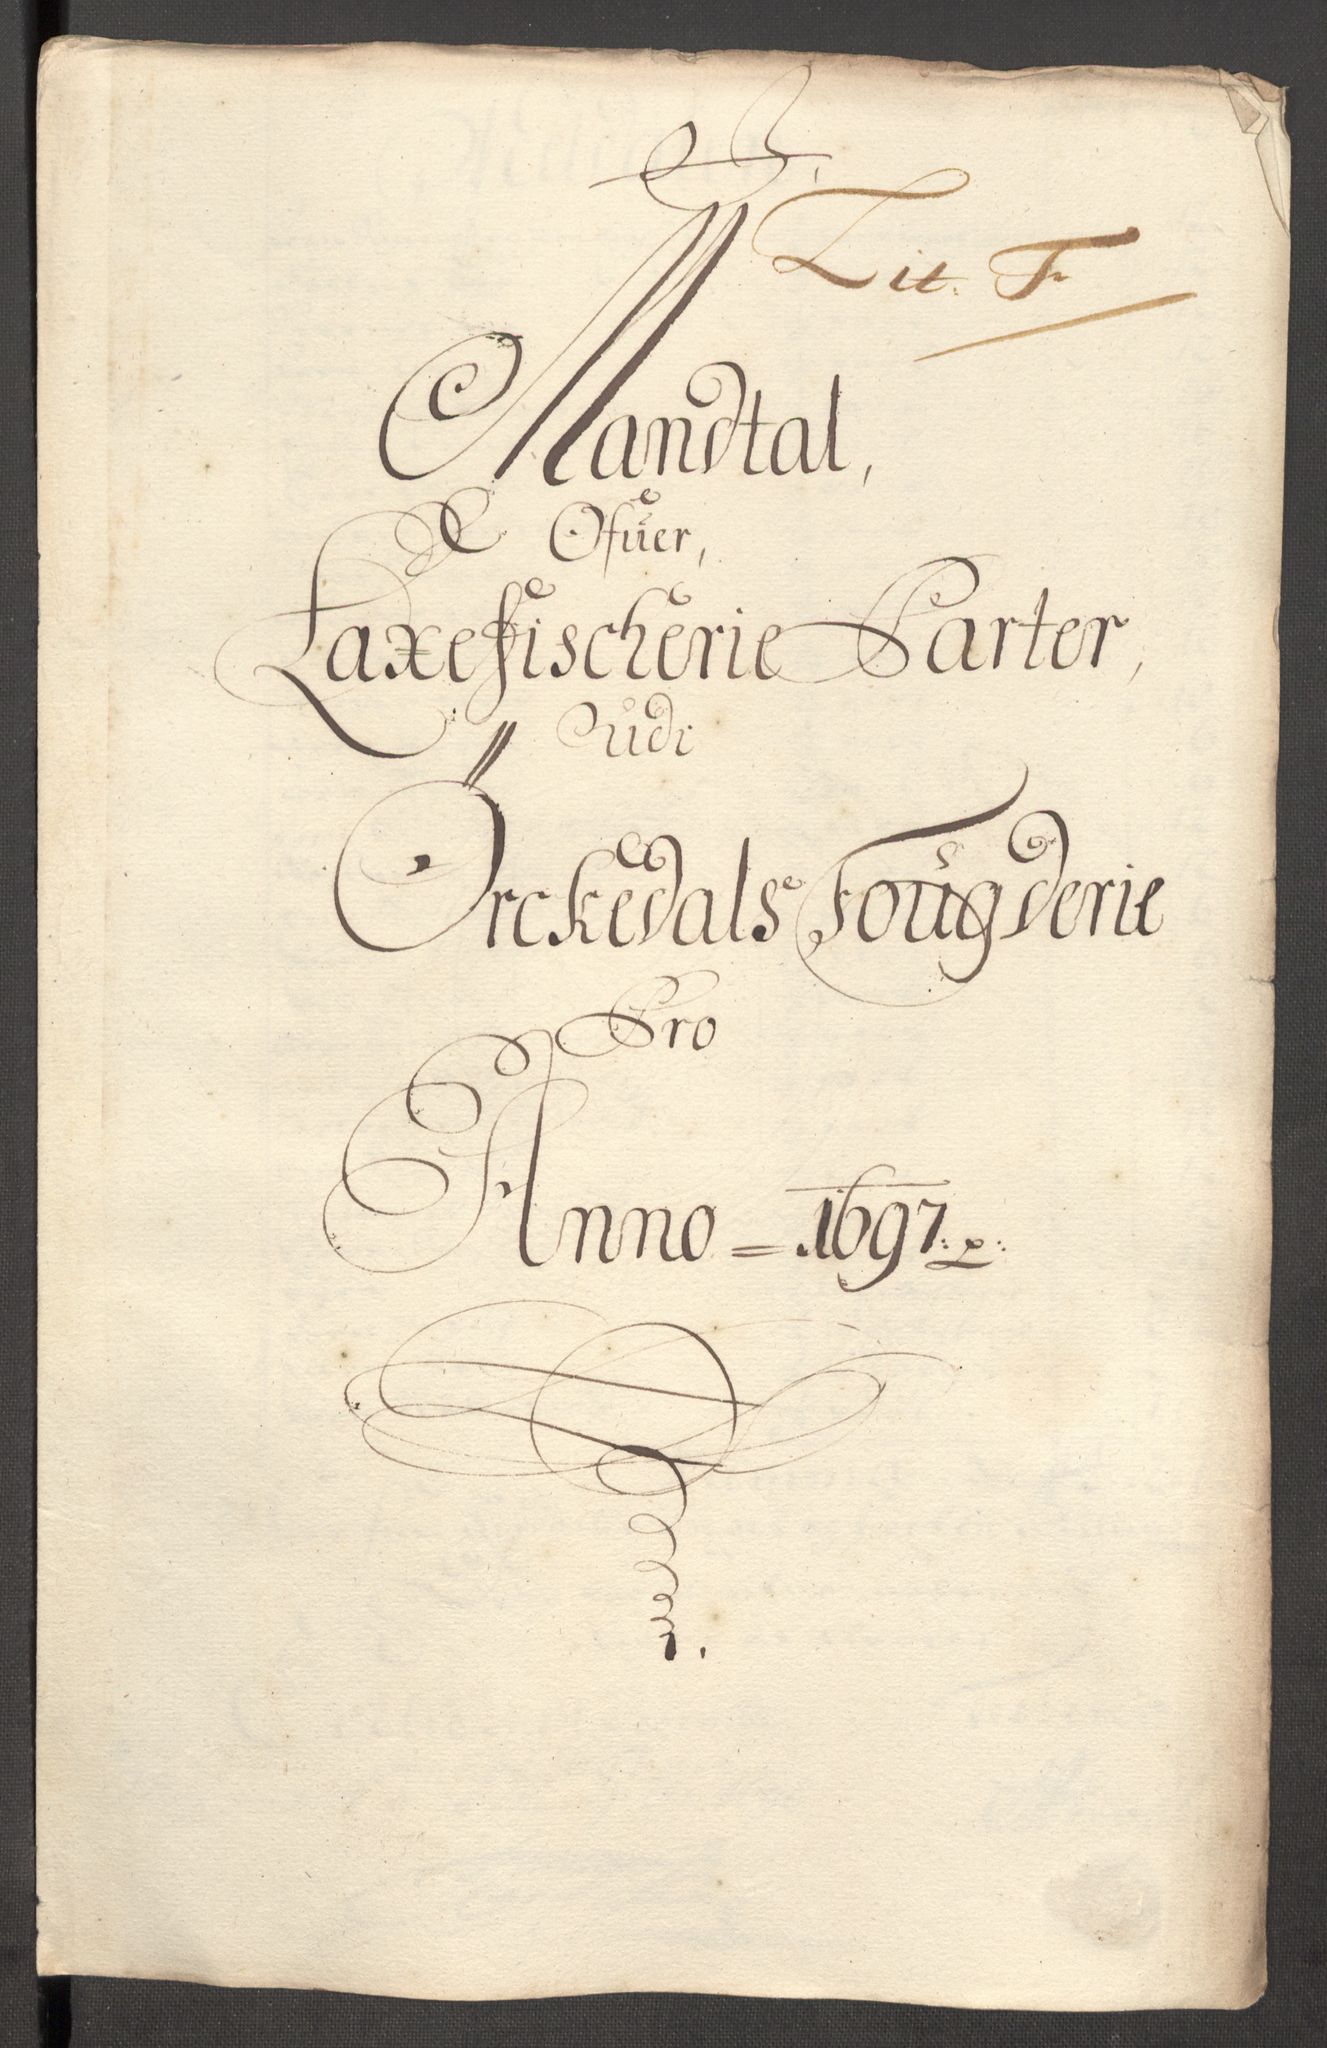 Lit. F
Mandtal,
Ofuer,
Laxefischerie Parter,
Udi
Örckedals Fougderie
Pro
Anno = 1697.